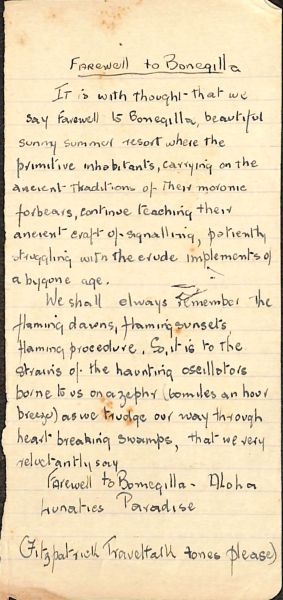 Farewell to Bonegilla
It is with thought that we
say farewell to Bonegilla, beautiful
sunny summer resort where the
primitive inhabitants, carrying on the
ancient traditions of their moronic
forbears, continue teaching their
ancient craft of signalling, patiently
struggling with the crude implements of
a bygone age.
We shall always remember the
flaming dawns, flaming sunsets
flaming procedure. So, it is to the
strains of the haunting oscillators
borne to us on a zephr (60 miles an hour
breeze) as we trudge our way through
heart breaking swamps, that we very
reluctantly say
Farewell to Bonegilla - Aloha
Lunatics Paradise
(Fitzpatrick Traveltalk tones please)